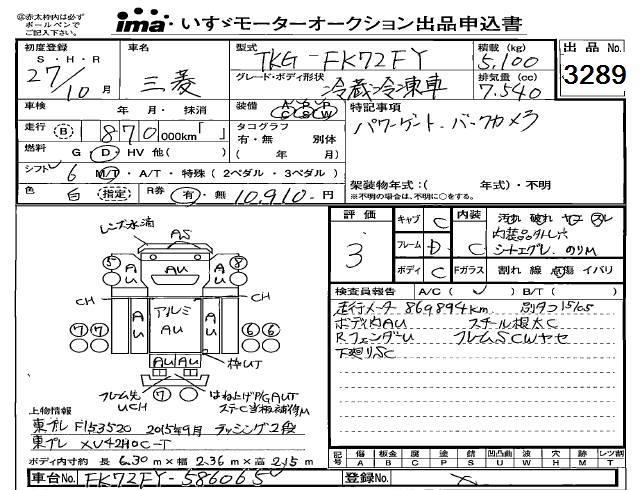 ◎赤太枠内は必ず
ボールペンで
ご記入下さい。
ima いすゞモーターオークション出品申込書
初度登録 車名 型式 TKG-FK72FY 積載(kg) 5,100 出品No.
S・H・R 27/10月 三菱 グレード・ボディ形状 冷蔵冷凍車 排気量(cc) 7.540 3289
車検 年・月・抹消 装備 特記事項
走行 (B) 870,000km「 」 タコグラフ パワーゲート. バックカメラ
有・無 別体
燃料 G D・HV 他( ) ( 年 月)
シフト 6 M/T・A/T・特殊(2ペダル・3ペダル) 架装物年式:( 年式)・不明
色 白 指定 R券 有・無 10,910-円 ※不明の場合は、不明に○をする。
評価 キャブ C 内装 C 汚れ 破れ
3 フレーム D 内装品外し穴
シートエグレ. のりM
ボディ C Fガラス 割れ 線 点傷 イバリ
レンズ水滴
AS
AU AU AU
CH CH
アルミ
AU AU AU
AU AU
枠UT
フレーム先
UCH
はね上げP/GAUT
検査員報告 A/C( ) B/T( )
走行メータ 869894km 別タコ15/05
ボディ内AU スチール根太C
RフェンダーU フレームSCWヤセ
下廻りSC
上物情報
東プレ F153520 2015年9月 ラッシング2段
東プレ XV42H0C-T
ボディ内寸約 長 6.30m×幅 2.36m×高 2.15m
記号 傷 A 板金 B 腐 C 塗 P 錆 S 凹凸曲 U 波 W 穴 H 跡 M レツ割 T
車台No. FK72FY-586065 登録No.